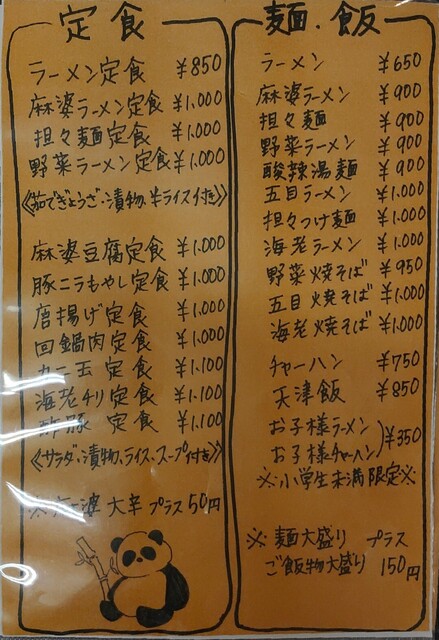 定食
ラーメン定食 ¥850
麻婆ラーメン定食 ¥1,000
担々麺定食 ¥1,000
野菜ラーメン定食 ¥1,000
《茹でぎょうざ、漬物、半ライス付き》
麻婆豆腐定食 ¥1,000
豚ニラもやし定食 ¥1,000
唐揚げ定食 ¥1,000
回鍋肉定食 ¥1,000
カニ玉定食 ¥1,100
海老チリ定食 ¥1,100
酢豚定食 ¥1,100
《サラダ、漬物、ライス、スープ付き》
※麻婆 大辛 プラス 50円
麺・飯
ラーメン ¥650
麻婆ラーメン ¥900
担々麺 ¥900
野菜ラーメン ¥900
酸辣湯麺 ¥900
五目ラーメン ¥1,000
担々つけ麺 ¥1,000
海老ラーメン ¥1,000
野菜焼そば ¥950
五目焼そば ¥1,000
海老焼そば ¥1,000
チャーハン ¥750
天津飯 ¥850
お子様ラーメン
お子様チャーハン ¥350
※小学生未満限定※
※ 麺大盛り プラス
ご飯物大盛り 150円